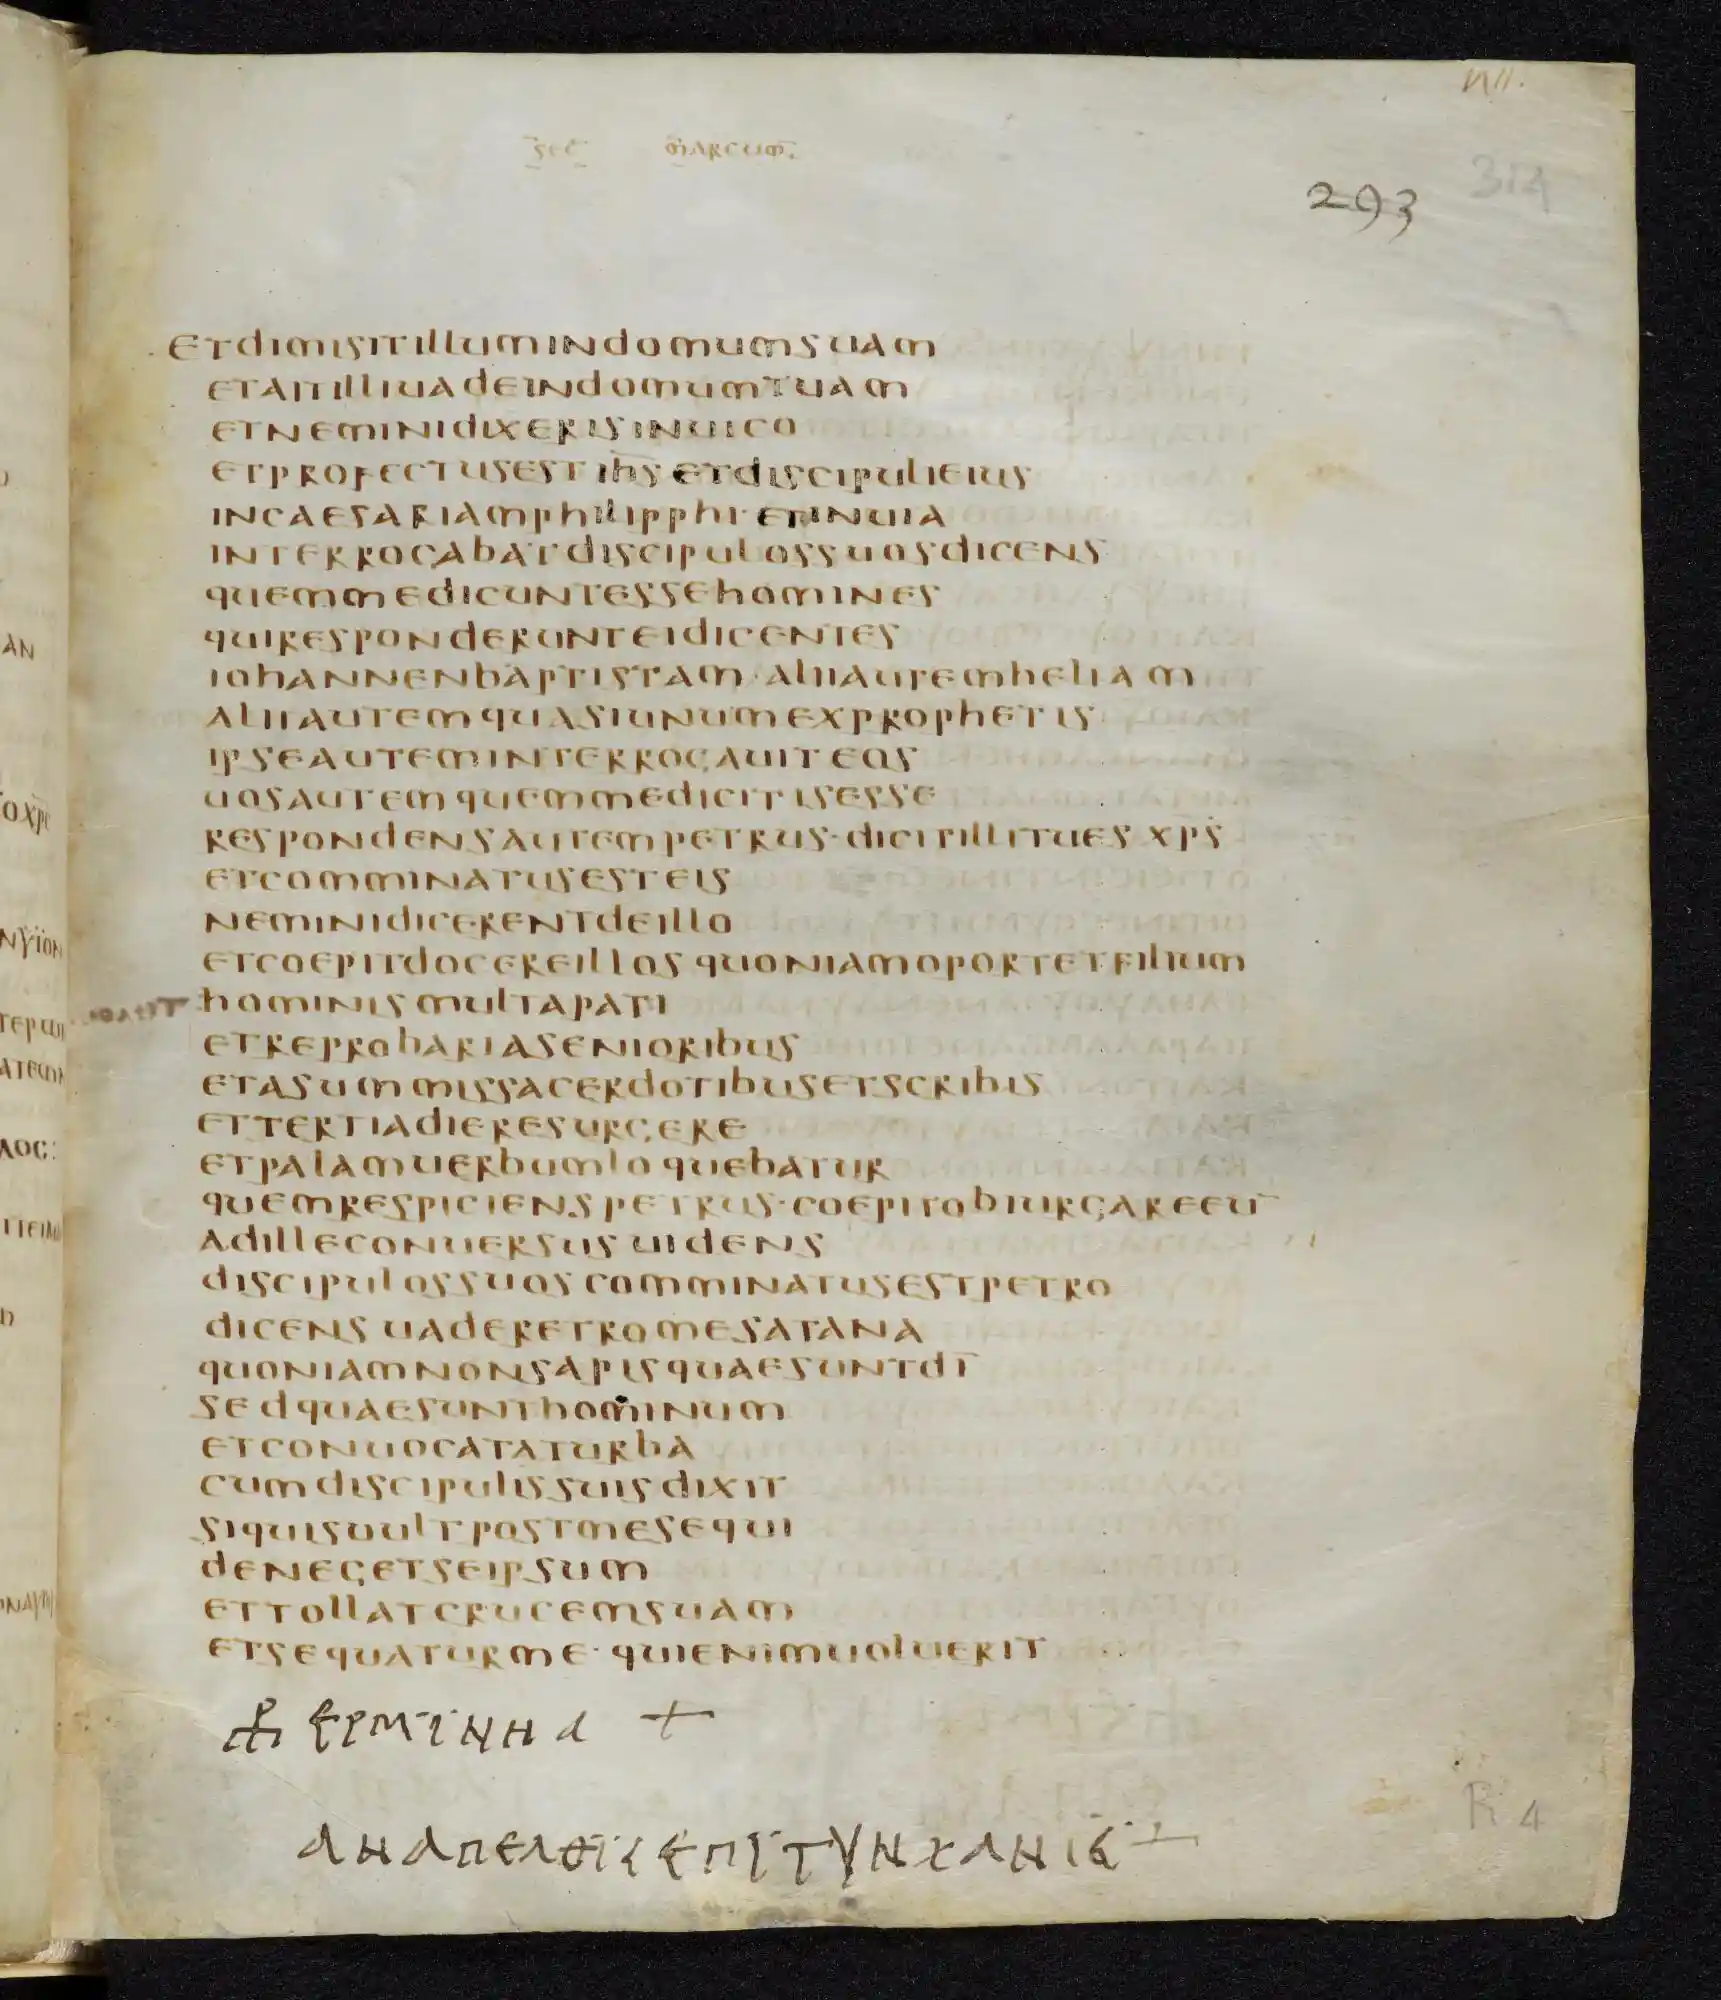 VII.
sec marcum.
314
293
etdimisitillumindomumsuam
etaitilliuadeindomumtuam
etneminidixerisinuico
etprofectusest ihs etdiscipulieius
incaesariamphilipphi· etinuia
interrogabatdiscipulossuosdicens
quemmedicuntessehomines
quiresponderunteidicentes
iohannenbaptistam·aliiautemheliam
aliiautemquasiunumexprophetis
ipseauteminterrogauiteos
uosautemquemmedicitisesse
respondensautempetrus·dicitillitues xps
etcomminatusesteis
neminidicerentdeillo
etcoepitdocereillos quoniamoportetfilium
hominismultapati
etreprobariasenioribus
etasummissacerdotibusetscribis
ettertiadieresurgere
etpalamuerbumloquebatur
quemrespicienspetrus·coepitobiurgareeū
adilleconuersusuidens
discipulossuoscomminatusestpetro
dicensuaderetromesatana
quoniamnonsapisquaesuntdī
sedquaesunthominum
etconuocataturba
cumdiscipulissuisdixit
siquisuultpostmesequi
denegetseipsum
ettollatcrucemsuam
etsequaturme·quienimuoluerit
⳨ ερμϊνηα +
αναπελθϊςεπϊτυνχανις +
R 4